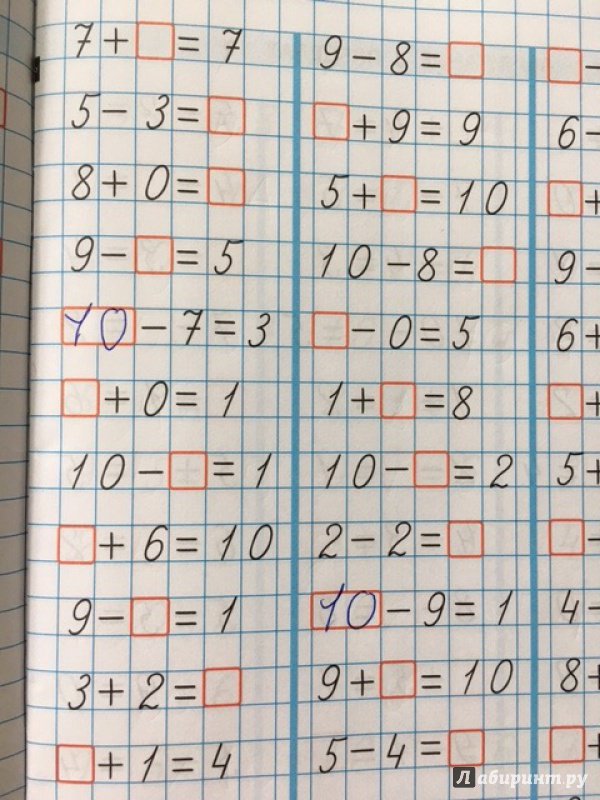 7 + □ = 7
5 - 3 = □
8 + 0 = □
9 - □ = 5
10 - 7 = 3
□ + 0 = 1
10 - □ = 1
□ + 6 = 10
9 - □ = 1
3 + 2 = □
□ + 1 = 4
9 - 8 = □
□ + 9 = 9
5 + □ = 10
10 - 8 = □
□ - 0 = 5
1 + □ = 8
10 - □ = 2
2 - 2 = □
10 - 9 = 1
9 + □ = 10
5 - 4 = □
□ -
6 -
□ +
9 -
6 +
□ +
5 +
□ -
4 -
8 +
□ +
Лабиринт.ру